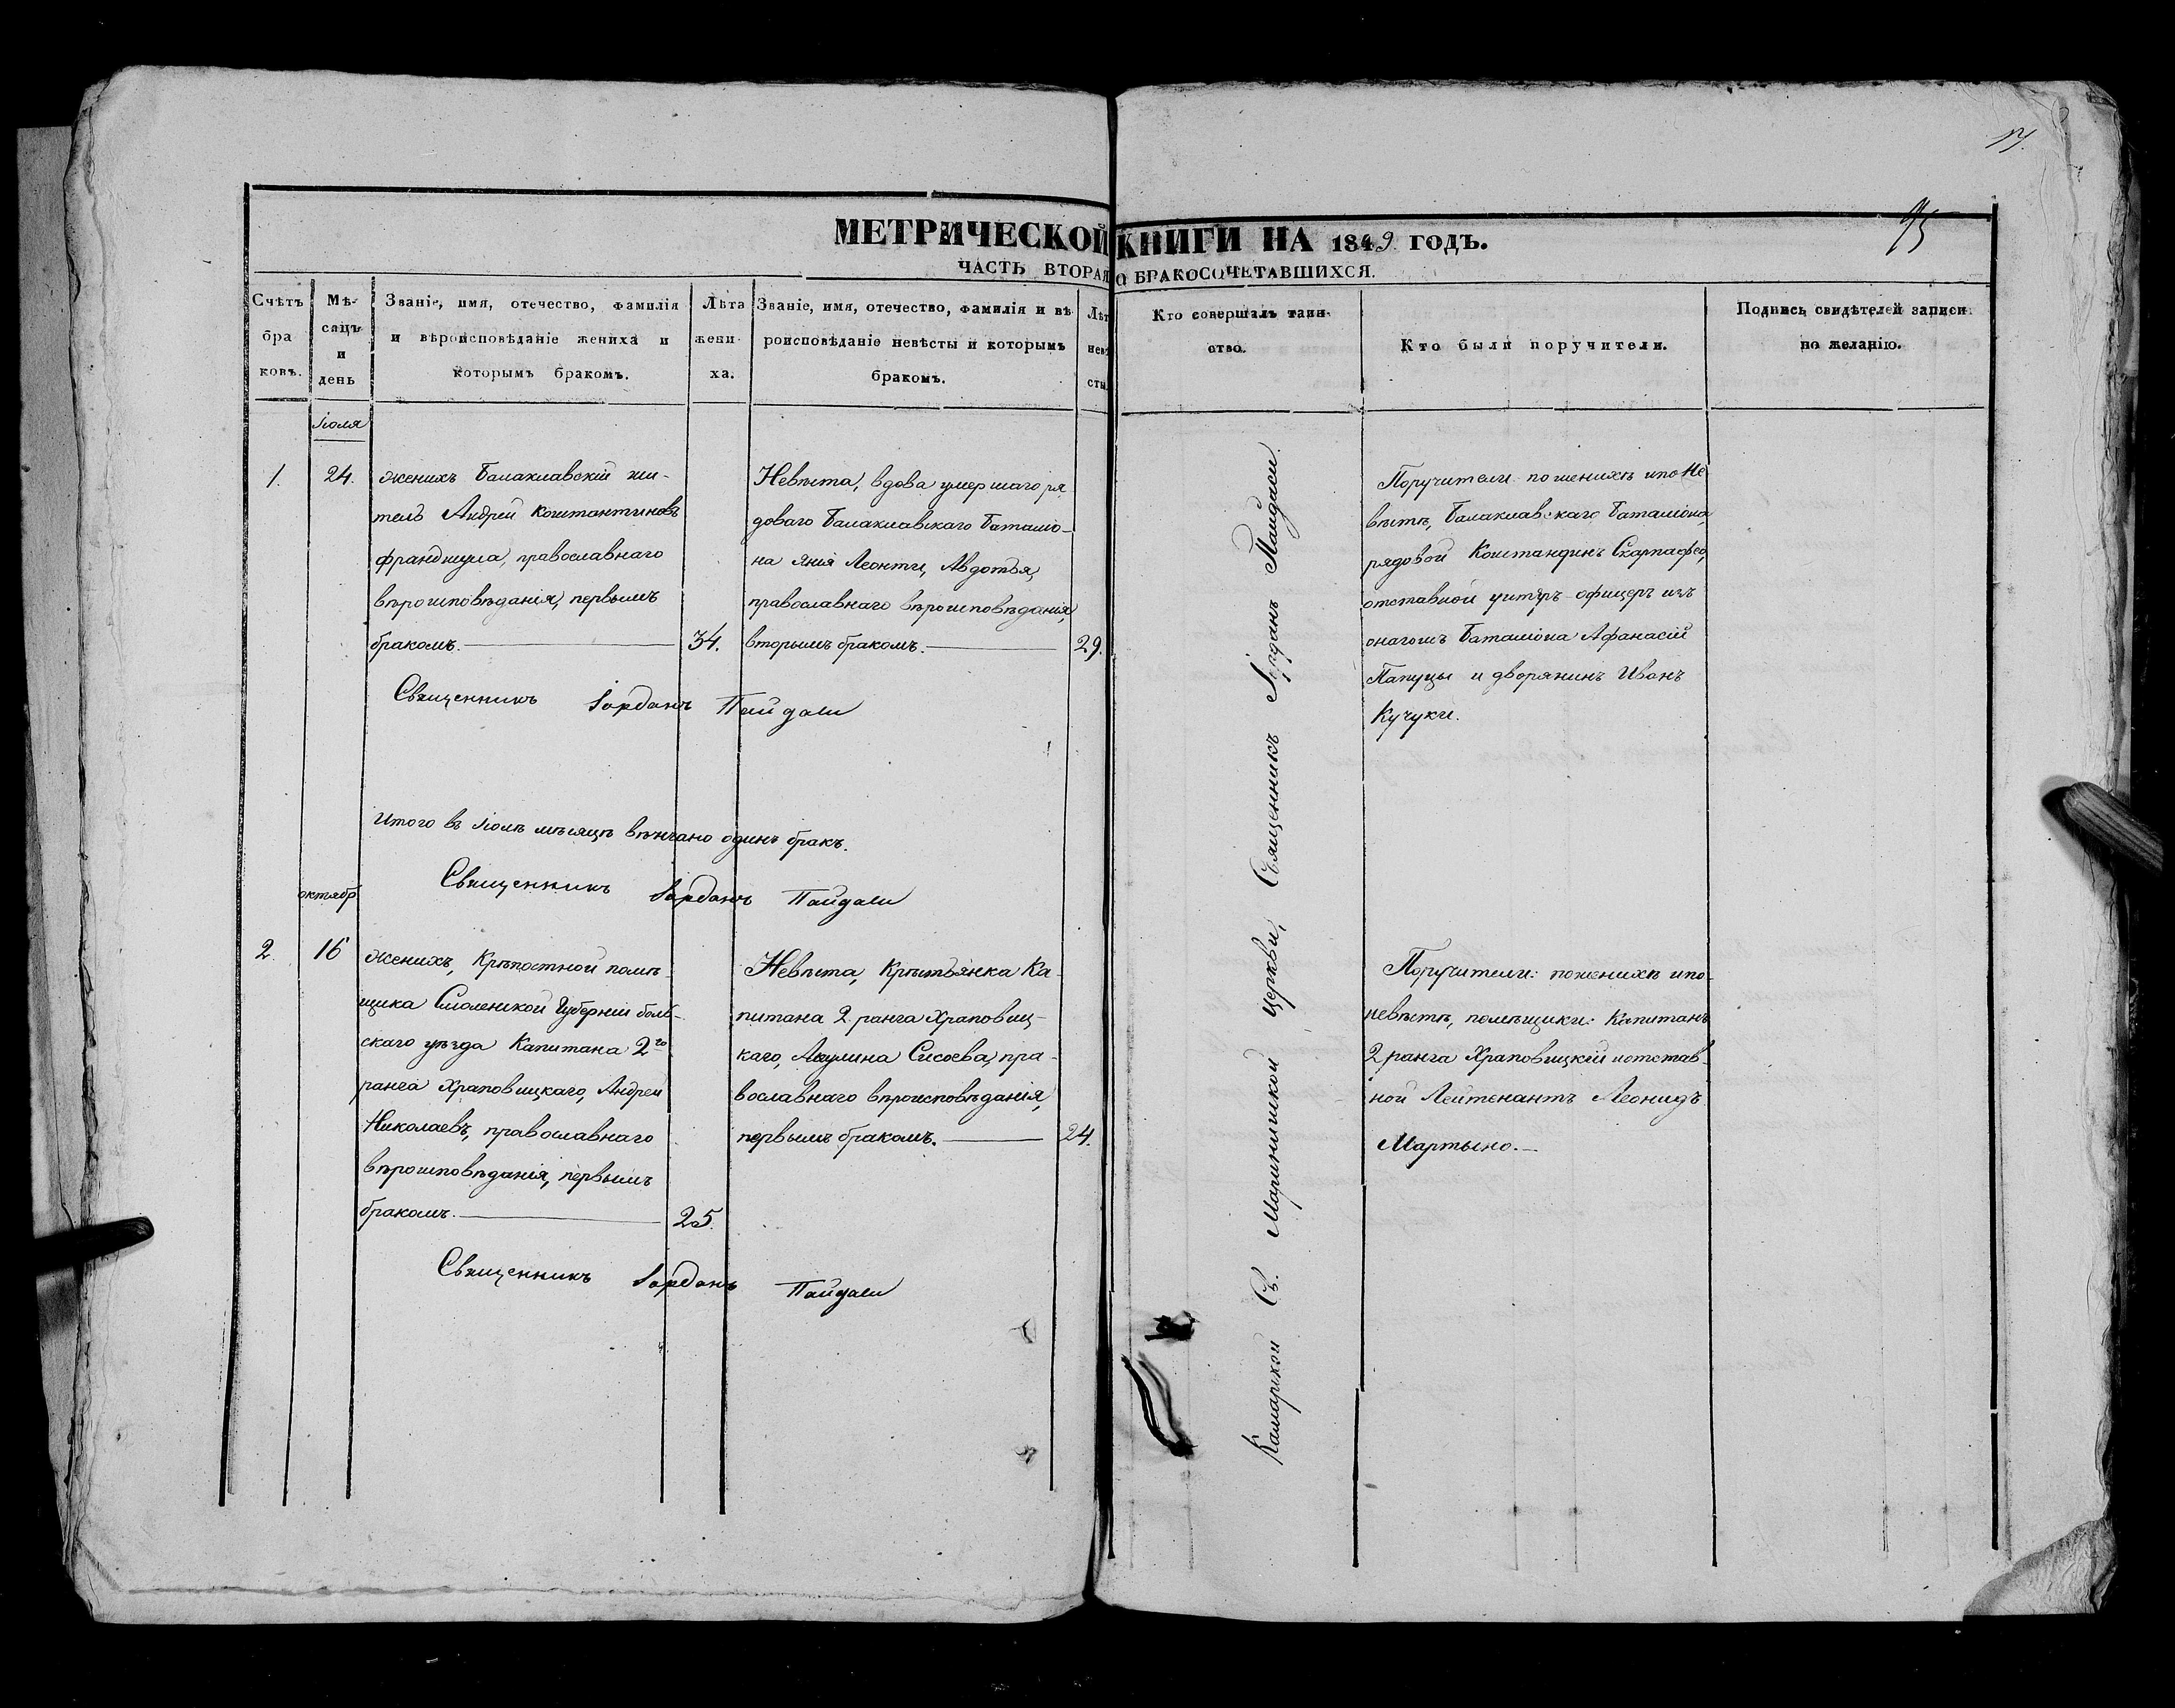 17.
95
МЕТРИЧЕСКОЙ КНИГИ НА 1849 ГОДЪ.
ЧАСТЬ ВТОРАЯ О БРАКОСОЧЕТАВШИХСЯ.
Счѣтъ
бра
ковъ.
Мѣ-
сяцъ
и
день
Званіе, имя, отечество, фамилія
и вѣроисповѣданіе жениха и
которымъ бракомъ.
Лѣта
жени-
ха.
Званіе, имя, отечество, фамилія и вѣ
роисповѣданіе невѣсты и которымъ
бракомъ.
Лѣт
невѣ
сты
Кто совершалъ таин-
ство.
Кто были поручители.
Подпись свидѣтелей записи
по желанію.
Іюля
1.
24.
Женихъ Балаклавскій жи-
тель Андрей Константиновъ
Франджула, православнаго
вѣроисповѣданія, первымъ
бракомъ.
34.
Невѣста, вдова умершаго ря
доваго Балаклавскаго Баталіо-
на Янія Леонти, Авдотья,
православнаго вѣроисповѣданія,
вторымъ бракомъ.
29.
Поручители по женихѣ и по Не
вѣстѣ, Балаклавскаго Баталіона,
рядовой Констандинъ
отставной унтеръ-офицеръ изъ
онагожъ Баталіона Афанасій
Папуцы и дворянинъ Иванъ
Кучуки.
Священникъ Іорданъ Пайдаси
Итого въ Іюлѣ мѣсяцѣ вѣнчано одинъ бракъ.
Священникъ Іорданъ Пайдаси
октябр
2.
16
Женихъ, Крѣпостной помѣ
щика Смоленской Губерніи бель-
скаго уѣзда Капитана 2го
ранга Храповицкаго, Андрей
Николаевъ, православнаго
вѣроисповѣданія, первымъ
бракомъ.
25.
Невѣста, Крестьянка Ка-
питана 2 ранга Храповиц-
каго, Акулина Сисоева, пра-
вославнаго вѣроисповѣданія,
первымъ бракомъ.
24.
Поручители: по женихѣ и по
невѣстѣ, помѣщики: Капитанъ
2 ранга Храповицкій и отстав-
ной Лейтенантъ Леонидъ
Мартыно.
Священникъ Іорданъ Пайдаси
Камарской Св. Марининской церкви, Священникъ Іорданъ Пайдаси.